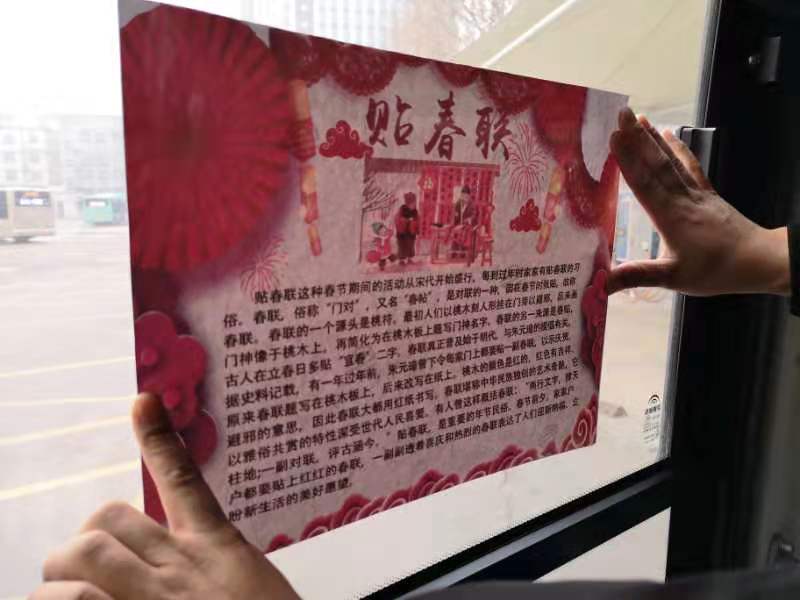 贴春联
贴春联这种春节期间的活动从宋代开始盛行。每到过年时家家有贴春联的习
俗。春联，俗称“门对”，又名“春帖”，是对联的一种，因在春节时张贴，故称
春联。春联的一个源头是桃符。最初人们以桃木刻人形挂在门旁以避邪，后来画
门神像于桃木上，再简化为在桃木板上题写门神名字。春联的另一来源是春贴，
古人在立春日多贴“宜春”二字。春联真正普及始于明代，与朱元璋的提倡有关。
据史料记载，有一年过年前，朱元璋曾下令每家门上都要贴一副春联，以示庆贺。
原来春联题写在桃木板上，后来改写在纸上。桃木的颜色是红的，红色有吉祥、
避邪的意思，因此春联大都用红纸书写。春联堪称中华民族独创的艺术奇葩，它
以雅俗共赏的特性深受世代人民喜爱。有人曾这样概括春联：“两行文字，撑天
柱地;一副对联，评古涵今。”贴春联，是重要的年节民俗。春节前夕，家家户
户都要贴上红红的春联，一副副透着喜庆和热烈的春联表达了人们迎新纳福、企
盼新生活的美好愿望。